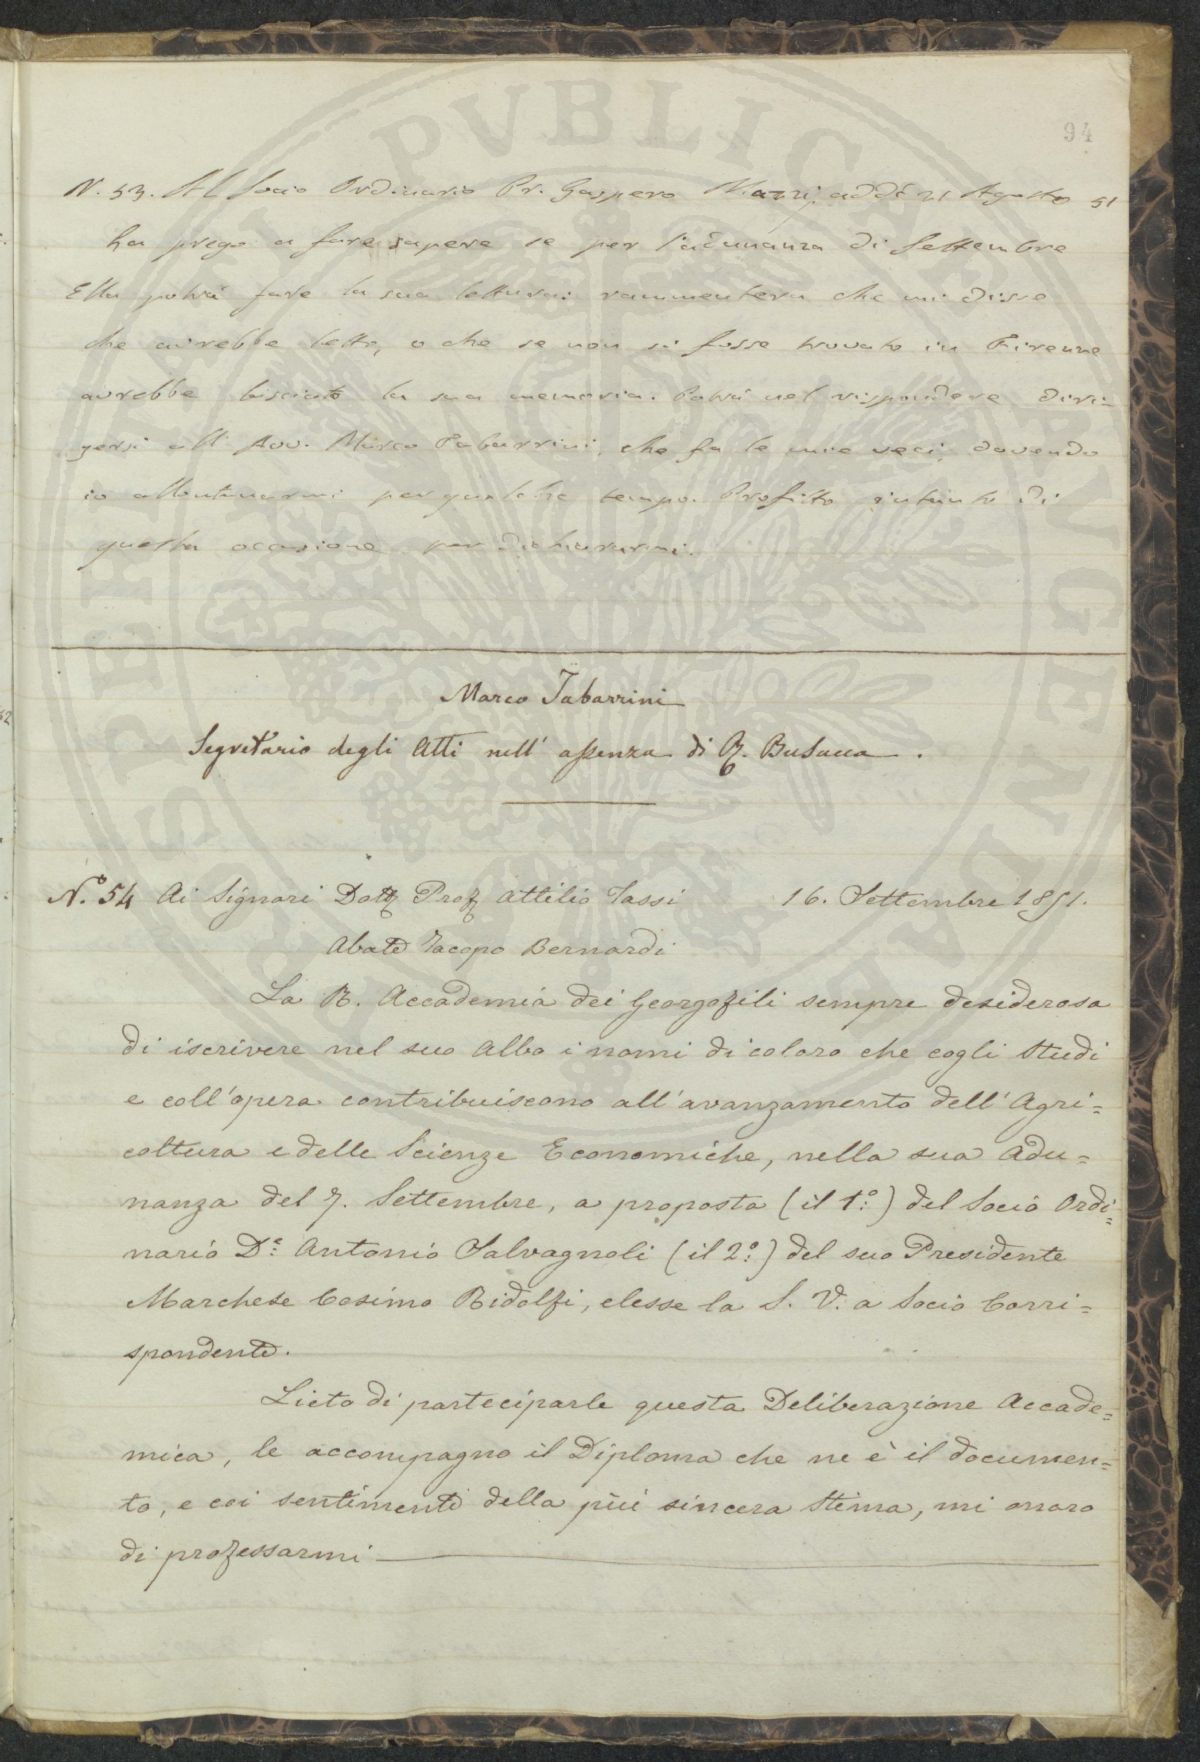 94
N. 53. Al Socio Ordinario Pr. Gaspero Mazzi, addì 21 Agosto 51
La prego a fare sapere se per l'adunanza di Settembre
Ella potrà fare la sua lettura: rammenterà che mi disse
che avrebbe letto, o che se non si fosse trovato in Firenze
avrebbe lasciato la sua memoria. Potrà nel rispondere diri-
gersi all' Avv. Marco Tabarrini, che fa le mie veci, dovendo
io allontanarmi per qualche tempo. Profitto intanto di
questa occasione per dichiararmi.
Marco Tabarrini
Segretario degli Atti nell' assenza di R. Busacca.
N.° 54 Ai Signori Dott. Prof. Attilio Tassi 16. Settembre 1851.
Abate Jacopo Bernardi
La R. Accademia dei Georgofili sempre desiderosa
di iscrivere nel suo Albo i nomi di coloro che cogli Studi
e coll'opera contribuiscono all'avanzamento dell'Agri=
coltura e delle Scienze Economiche, nella sua Adu=
nanza del 7. Settembre, a proposta (il 1.°) del Socio Ordi=
nario D.r Antonio Salvagnoli (il 2.°) del suo Presidente
Marchese Cosimo Ridolfi, elesse la S. V. a Socio Corri=
spondente.
Lieto di parteciparle questa Deliberazione Accade=
mica, le accompagno il Diploma che ne è il documen=
to, e coi sentimenti della più sincera Stima, mi onoro
di professarmi
PVBLICAE
PROSPERITATI
AVGENDAE